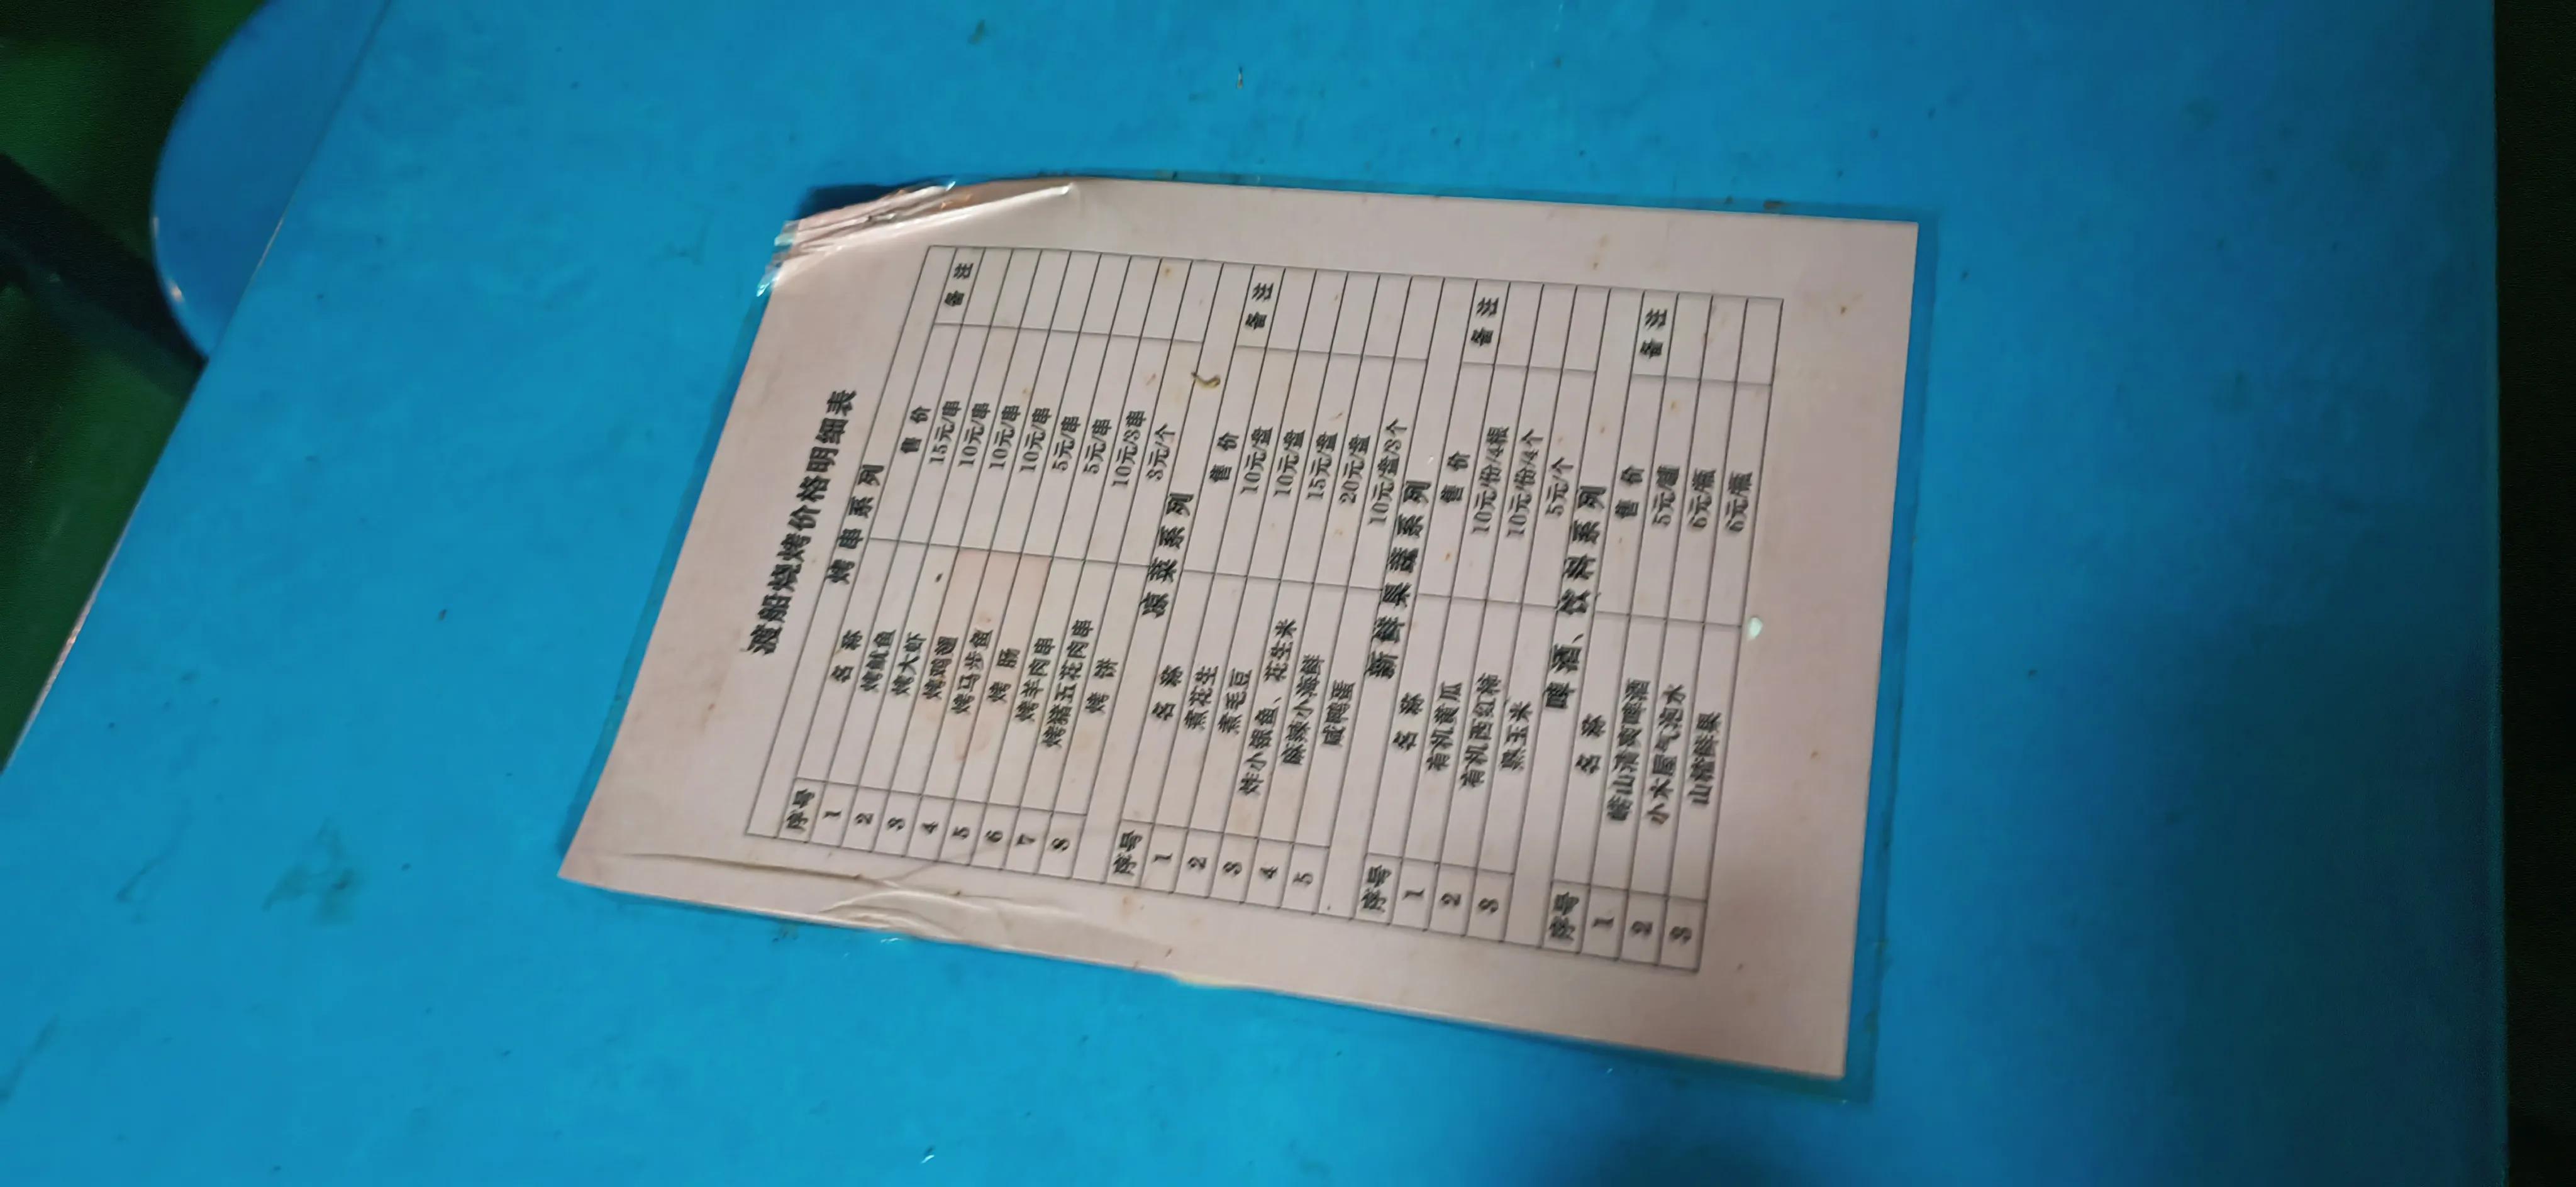 渡船烧烤价格明细表
烤 串 系 列
序号 名 称 售 价 备 注
1 烤鱿鱼 15元/串
2 烤大虾 10元/串
3 烤鸡翅 10元/串
4 烤马步鱼 10元/串
5 烤 肠 5元/串
6 烤羊肉串 5元/串
7 烤猪五花肉串 10元/3串
8 烤 饼 3元/个
凉 菜 系 列
序号 名 称 售 价 备 注
1 煮花生 10元/盘
2 煮毛豆 10元/盘
3 炸小银鱼、花生米 15元/盘
4 麻辣小海鲜 20元/盘
5 咸鸭蛋 10元/盘/3个
新 鲜 果 蔬 系 列
序号 名 称 售 价 备 注
1 有机黄瓜 10元/份/4根
2 有机西红柿 10元/份/4个
3 熟玉米 5元/个
啤 酒、 饮 料 系 列
序号 名 称 售 价 备 注
1 崂山清爽啤酒 5元/罐
2 小木屋气泡水 6元/瓶
3 山楂鲜果 6元/瓶